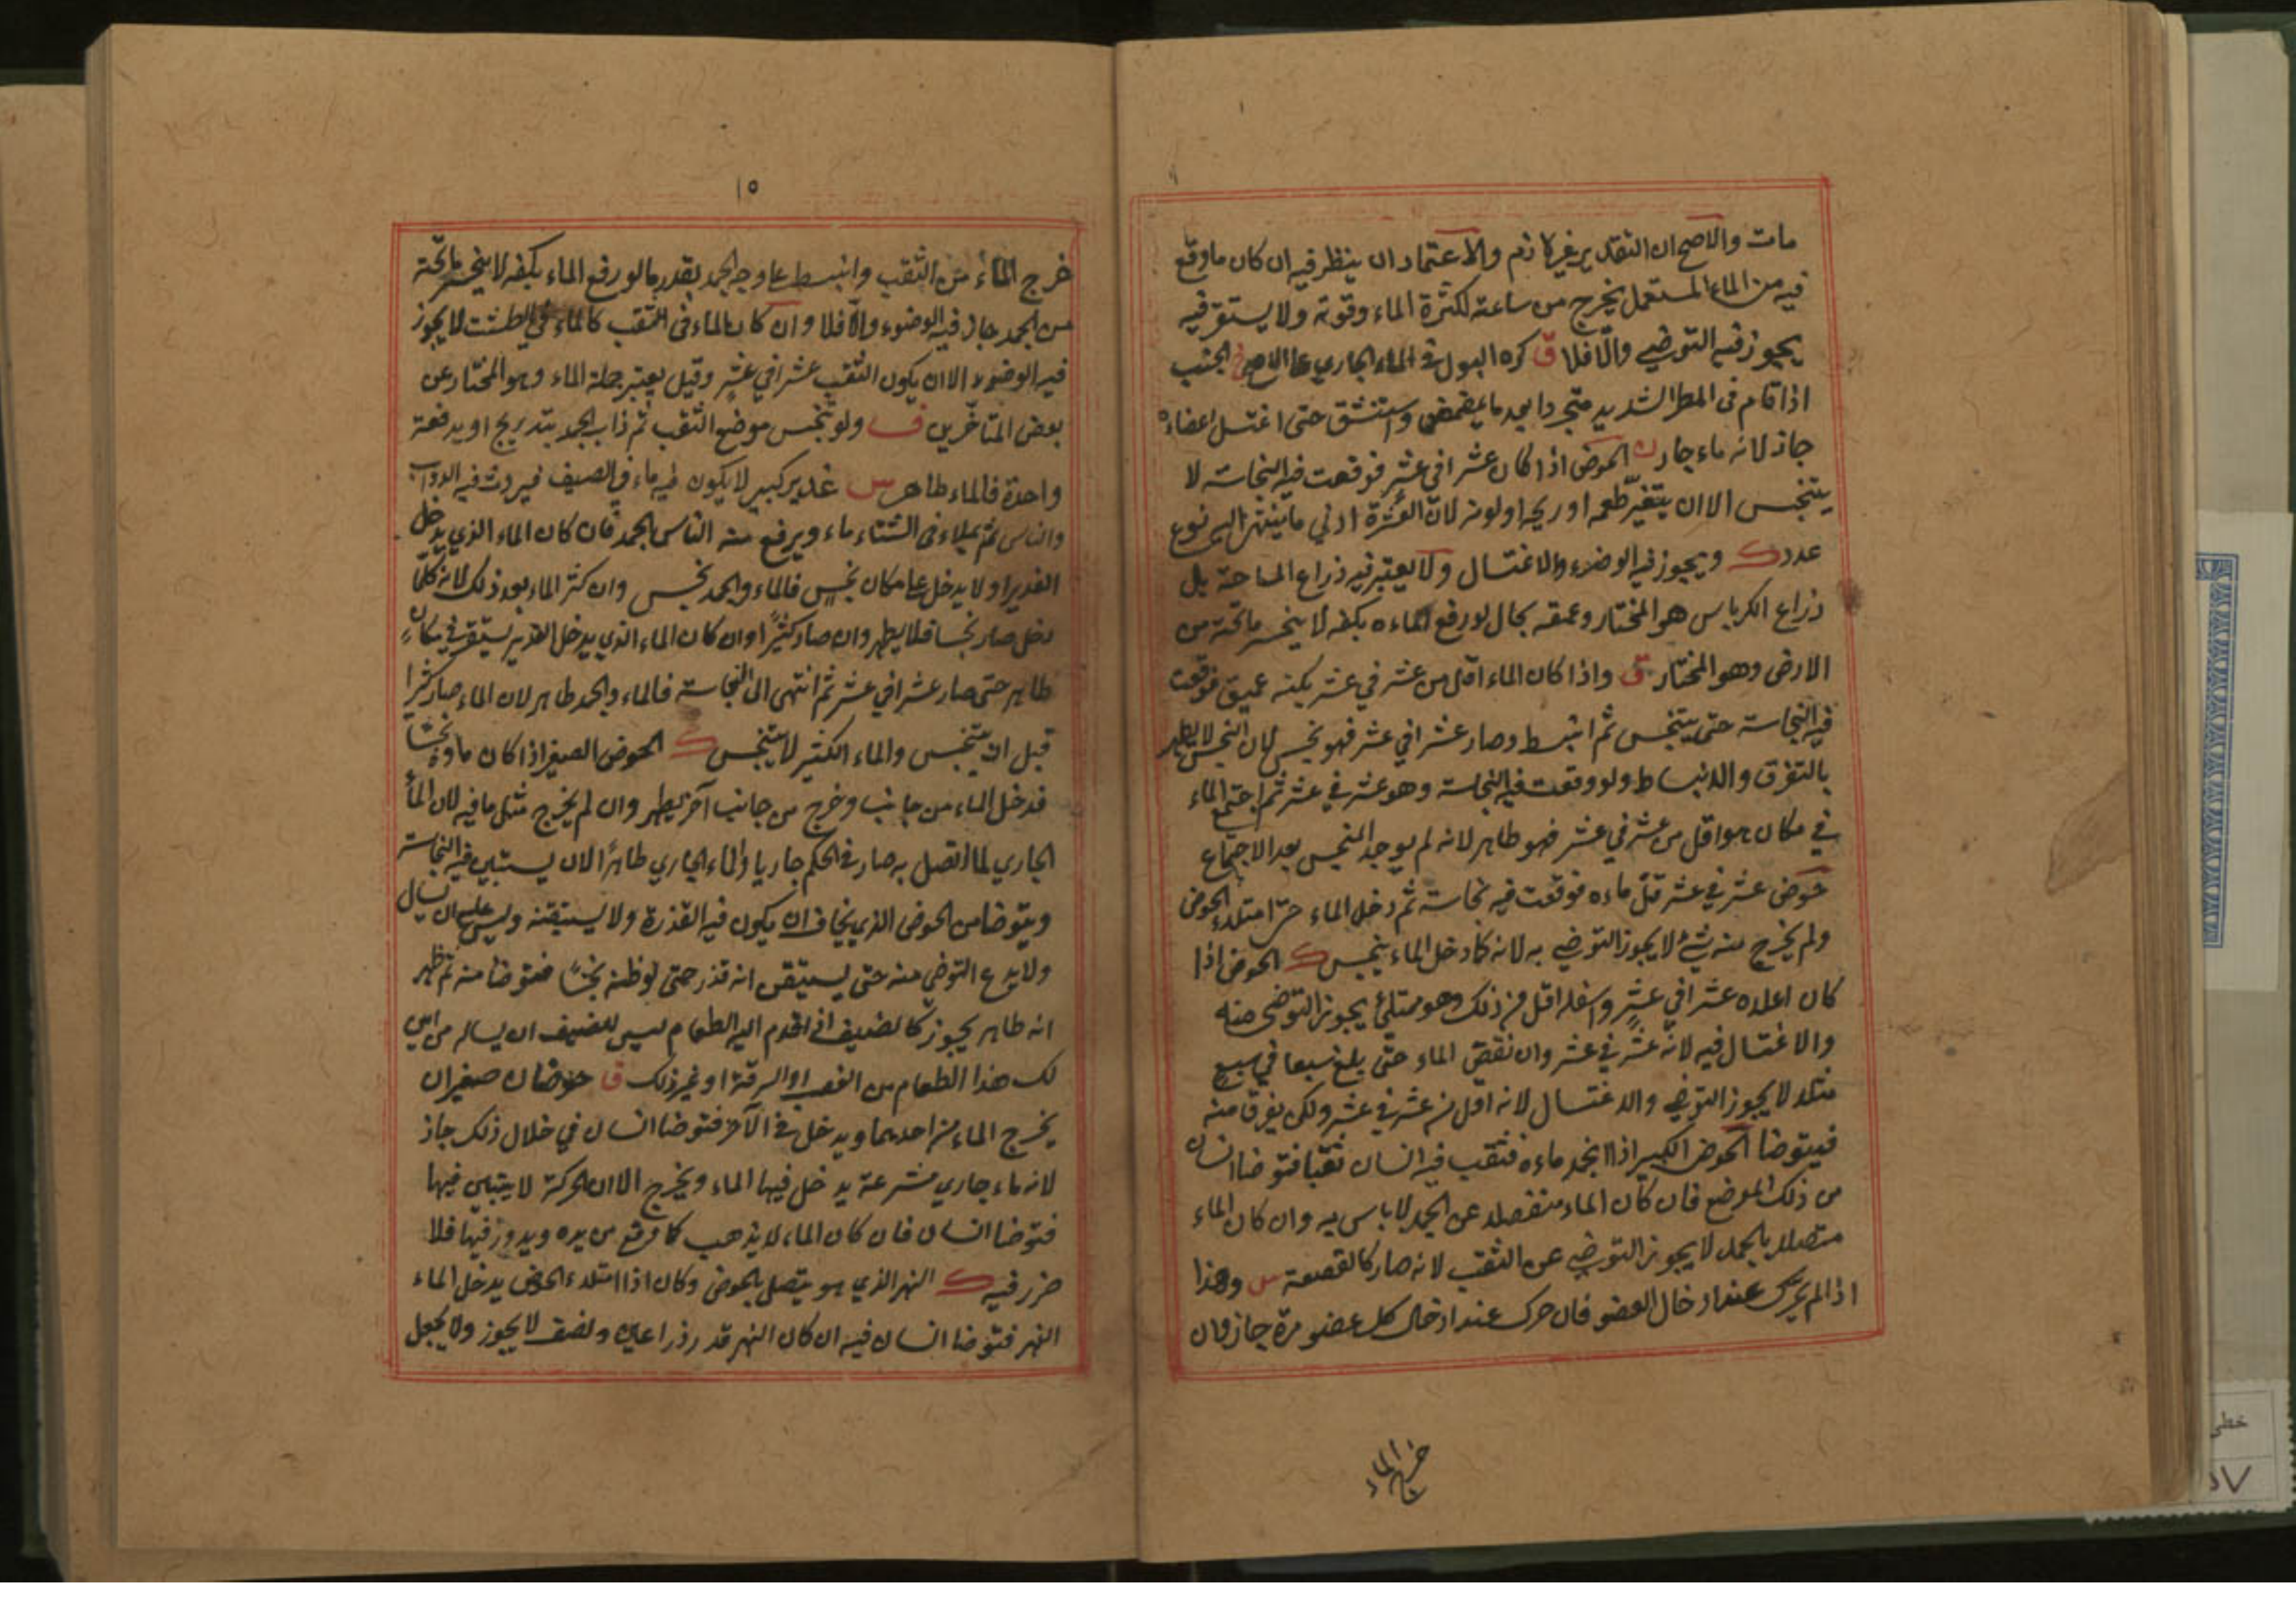 مات والاصح ان التقدير غير لازم والاعتماد ان ينظر فيه ان كان ما وقع
فيه من الماء المستعمل يخرج من ساعته لكثرة الماء وقوته ولا يستقر فيه
يجوز فيه التوضي والا فلا ق كره البول في الماء الجاري على الاصح الجنب
اذا قام في المطر الشديد متجردا بعد ما تمضمض واستنشق حتى اغتسل اعضاءه
جاز لانه ماء جار الحوض اذا كان عشرا في عشر فوقعت فيه النجاسة لا
يتنجس الا ان يتغير طعمه او ريحه او لونه لان العشرة ادنى ما ينتهى اليه نوع
عدد ك ويجوز فيه الوضوء والاغتسال ولا يعتبر فيه ذراع المساحة بل
ذراع الكرباس هو المختار وعمقه بحال لو رفع الماء بكفه لا ينحسر ما تحته من
الارض وهو المختار ق واذا كان الماء اقل من عشر في عشر لكنه عميق فوقعت
فيه النجاسة حتى يتنجس ثم انبسط وصار عشرا في عشر فهو نجس لان النجس لا يطهر
بالتفرق والانبساط ولو وقعت فيه النجاسة وهو عشر في عشر ثم اجتمع الماء
في مكان هو اقل من عشر في عشر فهو طاهر لانه لم يوجد المنجس بعد الاجتماع
حوض عشر في عشر قل ماءه فوقعت فيه نجاسة ثم دخل الماء حتى امتلاء الحوض
ولم يخرج منه شئ لا يجوز التوضي به لانه كما دخل الماء يتنجس ك الحوض اذا
كان اعلاه عشرا في عشر واسفله اقل من ذلك وهو ممتلئ يجوز التوضى منه
والاغتسال فيه لانه عشر في عشر وان نقص الماء حتى بلغ سبعا في سبع
مثلا لا يجوز التوضي والاغتسال لانه اقل من عشر في عشر ولكن يغرف منه
فيتوضا الحوض الكبير اذا انجمد ماءه فنقب فيه انسان نقبا فتوضا انسان
من ذلك الموضع فان كان الماء منفصلا عن الجمد لا باس به وان كان الماء
متصلا بالجمد لا يجوز التوضي عن النقب لانه صار كالقصعة س وهذا
اذا لم يحرك عند ادخال العضو فان حرك عند ادخال كل عضو مرة جاز وان
خرج الماء
١٥
خرج الماء من الثقب وانبسط على وجه الجمد بقدر ما لو رفع الماء بكفه لا ينحسر ما تحته
من الجمد جاز فيه الوضوء والا فلا وان كان الماء في الثقب كالماء في الطشت لا يجوز
فيه الوضوء الا ان يكون الثقب عشرا في عشر وقيل يعتبر جملة الماء وهو المختار عن
بعض المتاخرين ف ولو تنجس موضع الثقب ثم ذاب الجمد بتدريج او بدفعة
واحدة فالماء طاهر س غدير كبير لا يكون فيه ماء في الصيف فيروث فيه الدواب
والناس ثم يملاء في الشتاء ماء ويرفع منه الناس الجمد فان كان الماء الذي يدخل
الغدير اولا يدخل على مكان نجس فالماء والجمد نجس وان كثر الماء بعد ذلك لانه كلما
دخل صار نجسا فلا يطهر وان صار كثيرا وان كان الماء الذي يدخل الغدير يستقر في مكان
طاهر حتى صار عشرا في عشر ثم انتهى الى النجاسة فالماء والجمد طاهر لان الماء صار كثيرا
قبل ان يتنجس والماء الكثير لا يتنجس ك الحوض الصغير اذا كان ماؤه نجسا
فدخل الماء من جانب وخرج من جانب آخر يطهر وان لم يخرج مثل ما فيه لان الماء
الجاري لما اتصل به صار في الحكم جاريا والماء الجاري طاهرا الا ان يستبين فيه النجاسة
ويتوضا من الحوض الذي يخاف ان يكون فيه القذرة ولا يستيقنه وليس عليه ان يسال
ولا يدع التوضي منه حتى يستيقن انه قذر حتى لو ظنه نجسا فتوضا منه ثم ظهر
انه طاهر يجوز كالضيف اذا قدم اليه الطعام ليس للضيف ان يسال من اين
لك هذا الطعام من الغصب او السرقة او غير ذلك ق حوضان صغيران
يخرج الماء من احدهما ويدخل في الآخر فتوضا انسان في خلال ذلك جاز
لانه ماء جاري مشرعة يدخل فيها الماء ويخرج الا ان الحركة لا يتبين فيها
فتوضا انسان فان كان الماء لا يذهب كما وقع من يده ويدور فيها فلا
خرر فيه ك النهر الذي هو يتصل بالحوض وكان اذا امتلاء الحوض يدخل الماء
النهر فتوضا انسان فيه ان كان النهر قدر ذراعين ونصف لا يجوز ولا يجعل
خطی